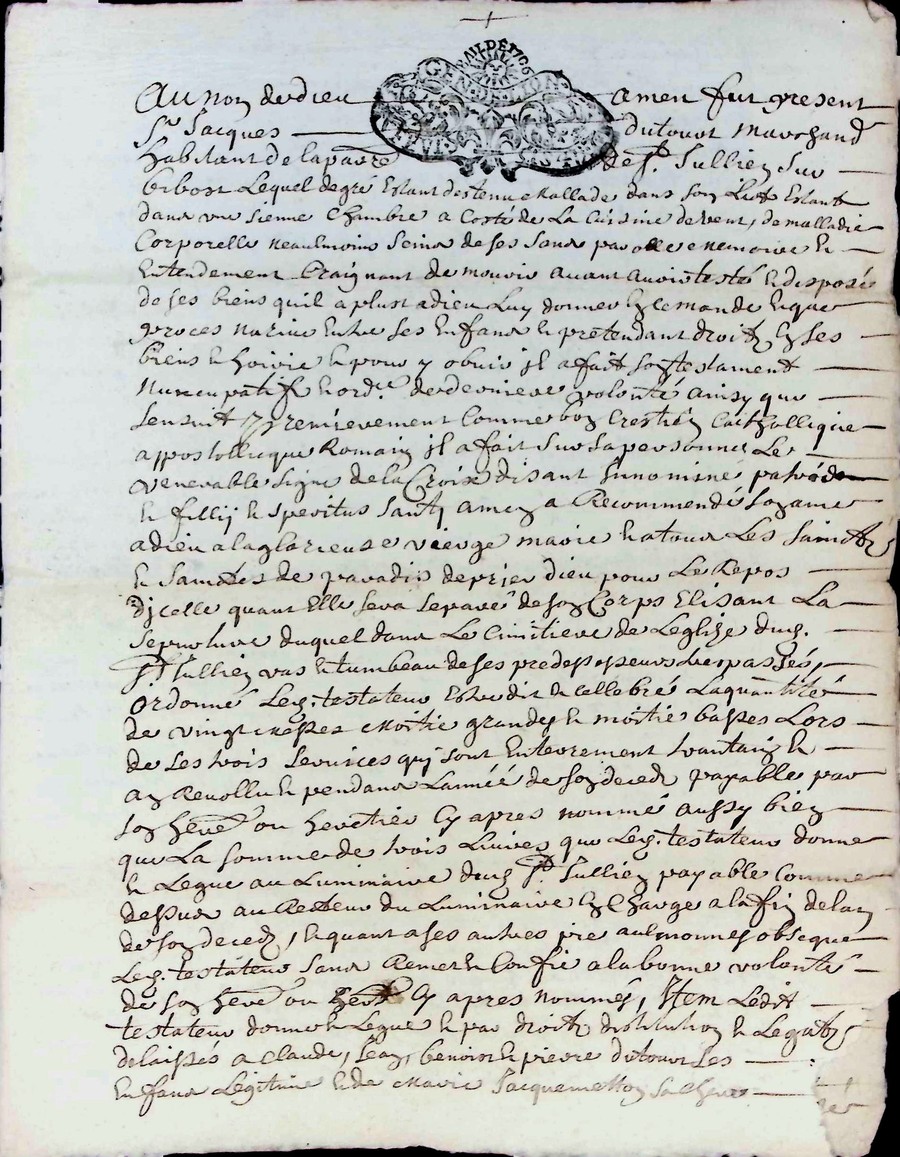 AVRIL DE 1706
GEN. DE LION
Au nom de dieu amen fut present
Sr. Jacques dutour Marchand
habitant de la parre de St. Jullien sur
bibost Lequel de gré Estant destenu Mallade dans son Lict Estant
dans une sienne Chambre a Costé de La Cuisine de vent, de malladie
Corporelle neaulmoins Seins de ses Sens parolle memoire et
Entendement Craignant de mourir avant avoir testé et disposé
de ses biens quil a plust a dieu Luy donner en ce monde et que
proces narrive Entre ses Enfans et pretendant droitz en ses
biens et hoirie et pour y obvier jl a fait son testament
Nuncupatif et ord. de derniere volonté ainsy que
sensuit premierement Comme bon Crestien Cathollique
appostollicque Romain jl a fait sur sa personne Le
venerable Signe de la Croix disant Jnnomine patris
et fillij et speritus santy amen a Recommendé son ame
a dieu a la glorieuse vierge marie et a tous Les Saincts
et Sainctes de paradis de prier dieu pour Le Repos
dicelle quant Elle sera separé de son Corps Elisant La
Sepulture duquel dans Le Cimitiere de Leglize dud.
St. Jullien vas et tumbeau de ses predecesseurs trespassés,
ordonne Led. testateur Estre dit et cellebré La quantité
de vingt Messes Moitié grandes et moitié basses Lors
de ses trois services quj sont Enterrement trantain et
an Revollu et pendant Lannéé de son deceds payable par
son here ou heretier Cy apres nommé aussy bien
que La somme de trois Livres que Led. testateur donne
et Legue au Luminaire dud. St. Jullien payable Comme
dessus au Recteur du Luminaire En Charge a la fin de lan
de son deceds, et quant a ses autres aulmonnes obseque
Led. testateur sans Remet et Confie a la bonne volonté
de son here ou Cy apres nommés, Jtem Ledit
testateur donne et Legue et par droit dinstitution et Legatz
delaissés a Claude, Jean, benoist et pierre dutour ses
Enfans Legitime et de Marie Jacquemetton sa chere